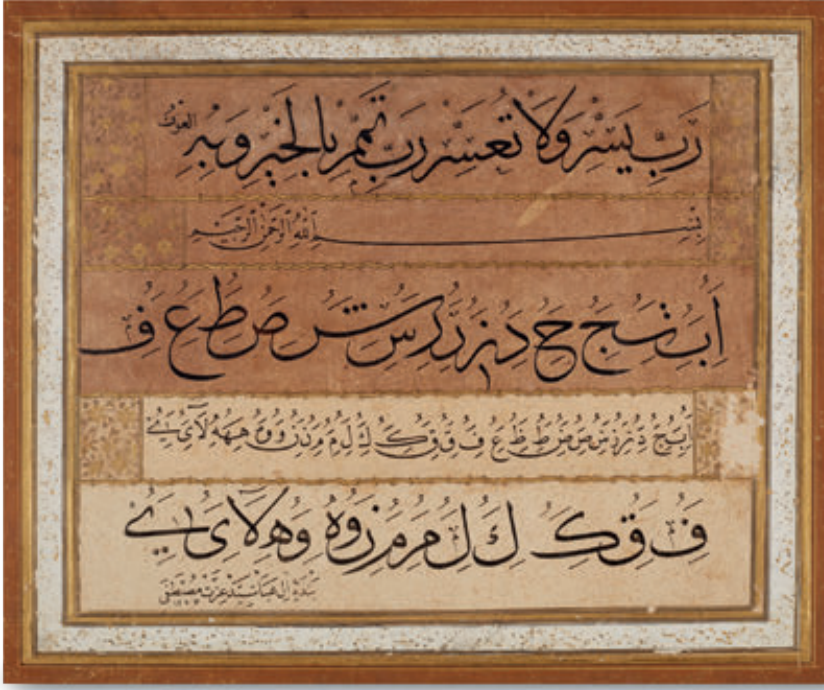 رَبِّ يَسِّرْ وَلَا تُعَسِّرْ رَبِّ تَمِّمْ بِالْخَيْرِ وَبِهِ العون
بسم الله الرحمن الرحيم
ا ب ج ح د ر س ش ص ط ع ف
ا ب ج د ر س ص ط ع ف ق ك ل م ن و ه لا ى ے
ف ق ك ل م ن و ه لا ى ے
بنده ال عبا سيد عزت مصطفى